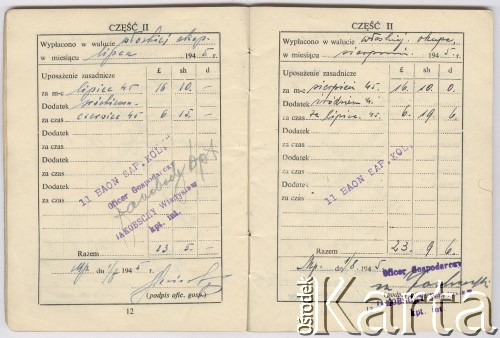 CZĘŚĆ II
Wypłacono w walucie włoskiej okup.
w miesiącu lipcu 1945 r.
Uposażenie zasadnicze £ sh d
za m-c lipiec 45. 16 10 -
Dodatek
za czas czerwiec 45 6 15 -
Dodatek
za czas
Dodatek
za czas
Dodatek
za czas
Dodatek
za czas
11 BAON SAP. KOL.
Oficer Gospodarczy
JAKUBSCZY Władysław
kpt. int.
Razem 23 5 -
dn. 1945 r.
(podpis ofic. gosp.)
12
CZĘŚĆ II
Wypłacono w walucie włoskiej okup.
w miesiącu sierpniu 1945 r.
Uposażenie zasadnicze £ sh d
za m-c sierpień 45. 16 10. 0.
Dodatek
za czas za lipiec 45. 6. 19 6.
Dodatek
za czas
Dodatek
za czas
Dodatek
za czas
Dodatek
za czas
11 BAON SAP. KOL.
Razem 23. 9 6.
dn. 1/8 1945 r.
Oficer Gospodarczy
kpt. int.
Ośrodek Karta
www.karta.org.pl